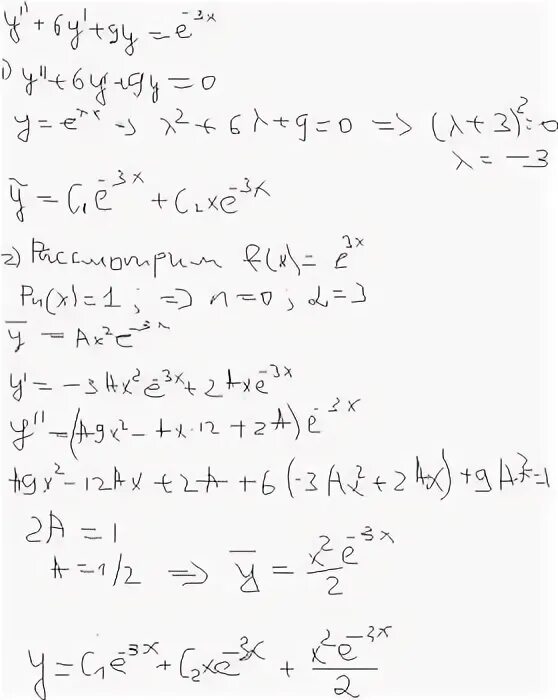 y'' + 6y' + 9y = e^{-3x}
1) y'' + 6y' + 9y = 0
y = e^{λx} => λ² + 6λ + 9 = 0 => (λ + 3)² = 0
λ = -3
ỹ = C₁e^{-3x} + C₂xe^{-3x}
2) Рассмотрим f(x) = e^{3x}
Pn(x) = 1 ; => n = 0 ; α = 3
ȳ = Ax²e^{-3x}
y' = -3Ax²e^{-3x} + 2Axe^{-3x}
y'' = (A9x² - Ax·12 + 2A)e^{-3x}
A9x² - 12Ax + 2A + 6(-3Ax² + 2Ax) + 9Ax² = 1
2A = 1
A = 1/2 => ȳ = x²e^{-3x}/2
y = C₁e^{-3x} + C₂xe^{-3x} + x²e^{-3x}/2